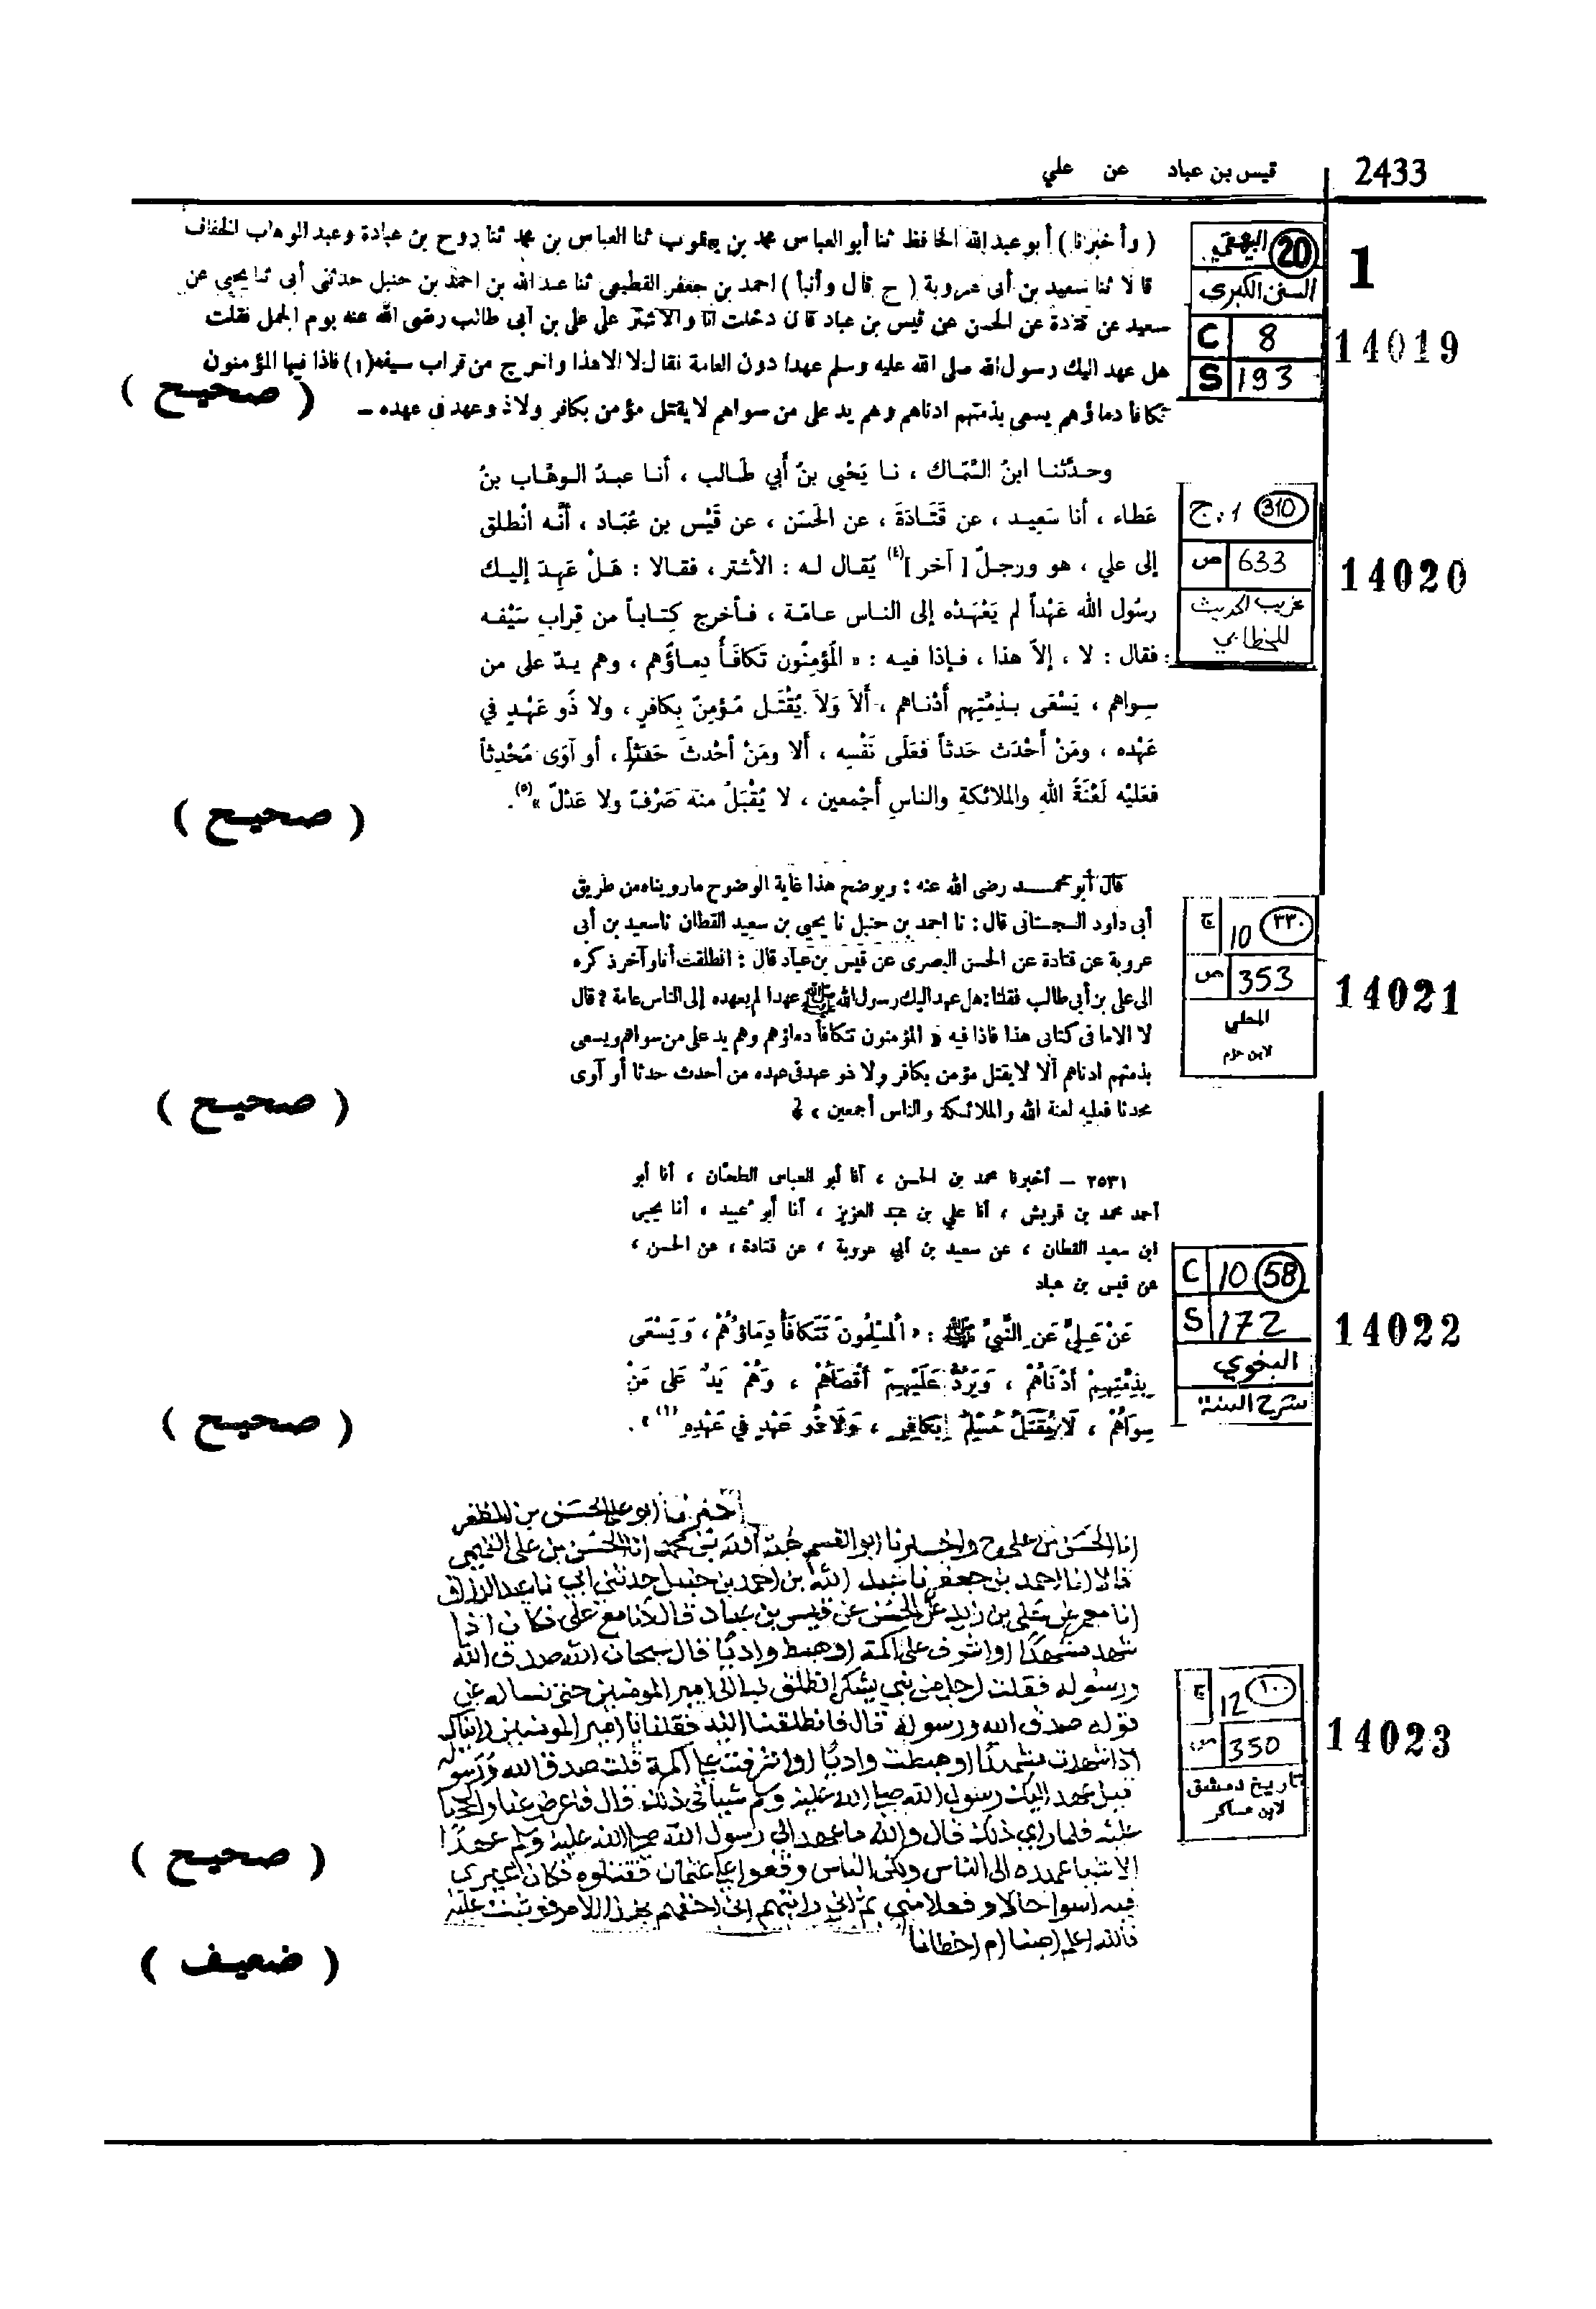 2433
قيس بن عباد عن علي
1
14019
20 البيهقي
السنن الكبرى
C 8
S 193
( وأخبرنا ) أبو عبد الله الحافظ ثنا أبو العباس محمد بن يعقوب ثنا العباس بن محمد ثنا روح بن عبادة وعبد الوهاب الخفاف
قالا ثنا سعيد بن أبى عروبة ( ح قال وأنبأ ) احمد بن جعفر القطيعى ثنا عبد الله بن احمد بن حنبل حدثنى أبى ثنا يحيى عن
سعيد عن قتادة عن الحسن عن قيس بن عباد قال دخلت انا والاشتر على على بن أبى طالب رضى الله عنه يوم الجمل فقلت
هل عهد اليك رسول الله صلى الله عليه وسلم عهدا دون العامة فقال لا الا هذا واخرج من قراب سيفه (١) فاذا فيها المؤمنون
تكافأ دماؤهم يسعى بذمتهم ادناهم وهم يد على من سواهم لا يقتل مؤمن بكافر ولا ذو عهد فى عهده ــ
( صحيح )
14020
310 ج ١
ص 633
غريب الحديث
للخطابي
وحدَّثنا ابنُ السَّمّاك ، نا يَحْيى بنُ أَبي طَالب ، أنا عبدُ الوهَّاب بنُ
عَطاء ، أنا سَعِيد ، عن قَتَادَةَ ، عن الحَسَن ، عن قَيْس بن عُبَاد ، أنَّه انْطلق
إلى علي ، هو ورجلٌ [ آخر ](٤) يُقال له : الأشتر ، فقالا : هَلْ عَهِدَ إليك
رسُول الله عَهْداً لم يَعْهَدْه إلى الناس عامّة ، فأخرج كِتاباً من قِراب سَيْفه
فقال : لا ، إلاّ هذا ، فإذا فيه : « المُؤمِنُون تَكافَأُ دِماؤُهم ، وهم يدٌ على من
سِواهم ، يَسْعَى بذِمَّتِهم أَدْناهم ، أَلَا وَلَا يُقْتَل مُؤمِنٌ بِكافرٍ ، ولا ذُو عَهْدٍ في
عَهْده ، ومَنْ أَحْدَث حَدثاً فَعَلَى نَفْسِه ، أَلا ومَنْ أَحْدثَ حَدَثاً ، أو آوَى مُحْدِثاً
فعَليْه لَعْنَةُ اللهِ والملائكةِ والناسِ أجْمعين ، لا يُقْبَلُ منهَ صَرْفٌ ولا عَدْلٌ »(٥).
( صحيح )
14021
٣٣٠ ج 10
ص 353
المحلى
لابن حزم
قال أبو محمد رضى الله عنه : ويوضح هذا غاية الوضوح مارويناه من طريق
أبى داود السجستانى قال : نا احمد بن حنبل نا يحيى بن سعيد القطان ناسعيد بن أبى
عروبة عن قتادة عن الحسن البصرى عن قيس بن عباد قال : انطلقت أنا وآخر ذكره
الى على بن أبى طالب فقلنا : هل عهد اليك رسول الله ﷺ عهدا لم يعهده إلى الناس عامة ؟ قال
لا الا ما فى كتابى هذا فاذا فيه « المؤمنون تتكافأ دماؤهم وهم يد على من سواهم ويسعى
بذمتهم ادناهم ألا لا يقتل مؤمن بكافر ولا ذو عهد فى عهده من أحدث حدثا أو آوى
محدثا فعليه لعنة الله والملائكة والناس أجمعين » ؟
( صحيح )
14022
C 10 58
S 172
البغوي
شرح السنة
٢٥٣١ ــ أخبرنا محمد بن الحسن ، أنا أبو العباس الطحان ، أنا أبو
أحمد محمد بن قريش ، أنا علي بن عبد العزيز ، أنا أبو عبيد ، أنا يحيى
ابن سعيد القطان ، عن سعيد بن أبي عروبة ، عن قتادة ، عن الحسن ،
عن قيس بن عباد
عَنْ عَلِيٍّ عَنِ النَّبِيِّ ﷺ : « الْمُسْلِمُونَ تَتَكَافَأُ دِمَاؤُهُمْ ، وَيَسْعَى
بِذِمَّتِهِمْ أَدْنَاهُمْ ، وَيَرُدُّ عَلَيْهِمْ أَقْصَاهُمْ ، وَهُمْ يَدٌ عَلَى مَنْ
سِوَاهُمْ ، لَا يُقْتَلُ مُسْلِمٌ بِكَافِرٍ ، وَلَا ذُو عَهْدٍ فِي عَهْدِهِ (١) » .
( صحيح )
14023
١٠٠ ج 12
ص 350
تاريخ دمشق
لابن عساكر
اخبرنا ابو علي الحسن بن المظفر
انا الحسن بن علي ح واخبرنا ابو القسم هبة الله بن محمد انا الحسن بن علي التميمي
قالا انا احمد بن جعفر نا عبد الله بن احمد بن حنبل حدثني ابي نا عبد الرزاق
انا معمر عن علي بن زيد عن الحسن عن قيس بن عباد قال كنا مع علي فكان اذا
شهد مشهدا او اشرف على اكمة او هبط واديا قال سبحان الله صدق الله
ورسوله فقلت لرجل من بني يشكر انطلق بنا الى امير المومنين حتى نساله عن
قوله صدق الله ورسوله قال فانطلقنا اليه فقلنا يا امير المومنين رايناك
اذا شهدت مشهدا او هبطت واديا او اشرفت على اكمة قلت صدق الله ورسوله
فهل عهد اليك رسول الله صلى الله عليه وسلم شيئا في ذلك قال فاعرض عنا والححنا
عليه فلما راى ذلك قال والله ما عهد الي رسول الله صلى الله عليه وسلم عهدا
الا شيئا عهده الى الناس ولكن الناس وقعوا على عثمان فقتلوه فكان غيري
فيه اسوا حالا وفعلا مني ثم اني رايتهم اني احقهم بهذا الامر فوثبت عليه
فالله اعلم اصبنا ام اخطانا
( صحيح )
( ضعيف )